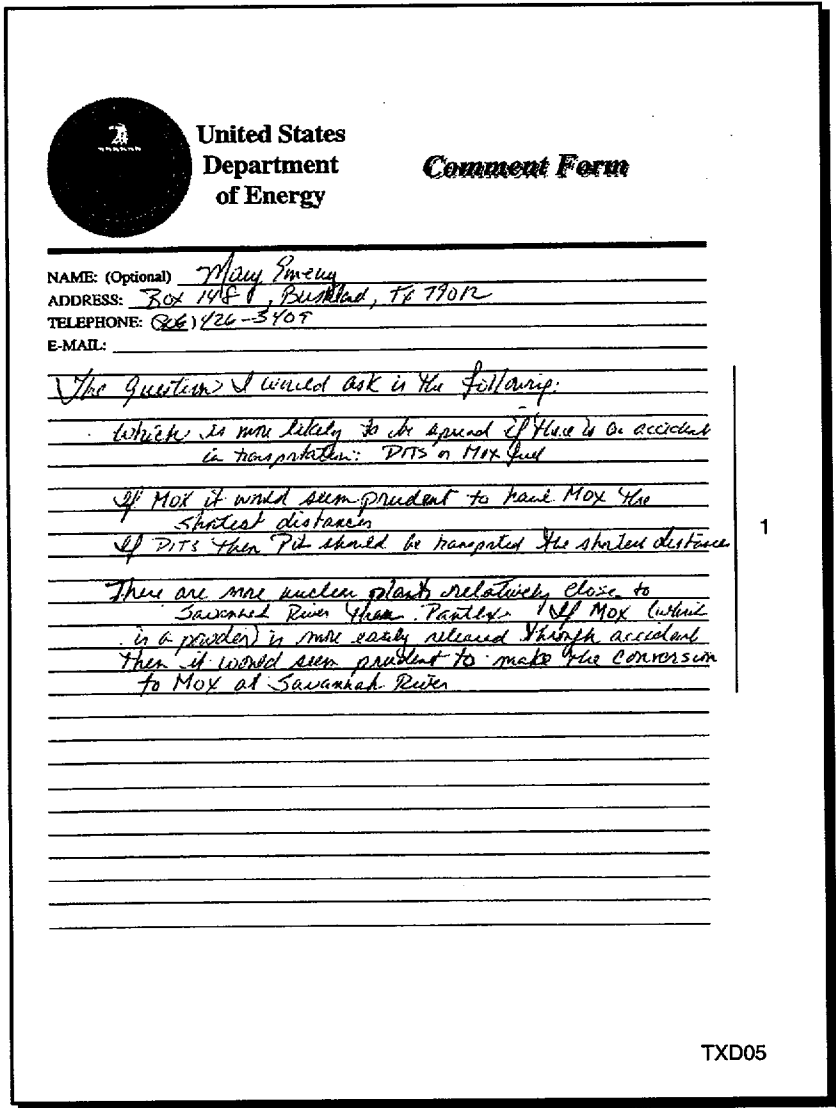 United States
Department
of Energy
Comment Form
NAME: (Optional) Mary Emeny
ADDRESS: Box 1480, Bushland, Tx 79012
TELEPHONE: (806) 426-3409
E-MAIL:
The question I would ask is the following:
Which is more likely to be spread if there is an accident
in transportation: PITS or Mox fuel
If MOX it would seem prudent to have MOX the
shortest distances
If PITS then Pit should be transported the shortest distances
1
There are more nuclear plants relatively close to
Savannah River than Pantex. If MOX (which
is a powder) is more easily released through accident
then it would seem prudent to make the conversion
to MOX at Savannah River
TXD05